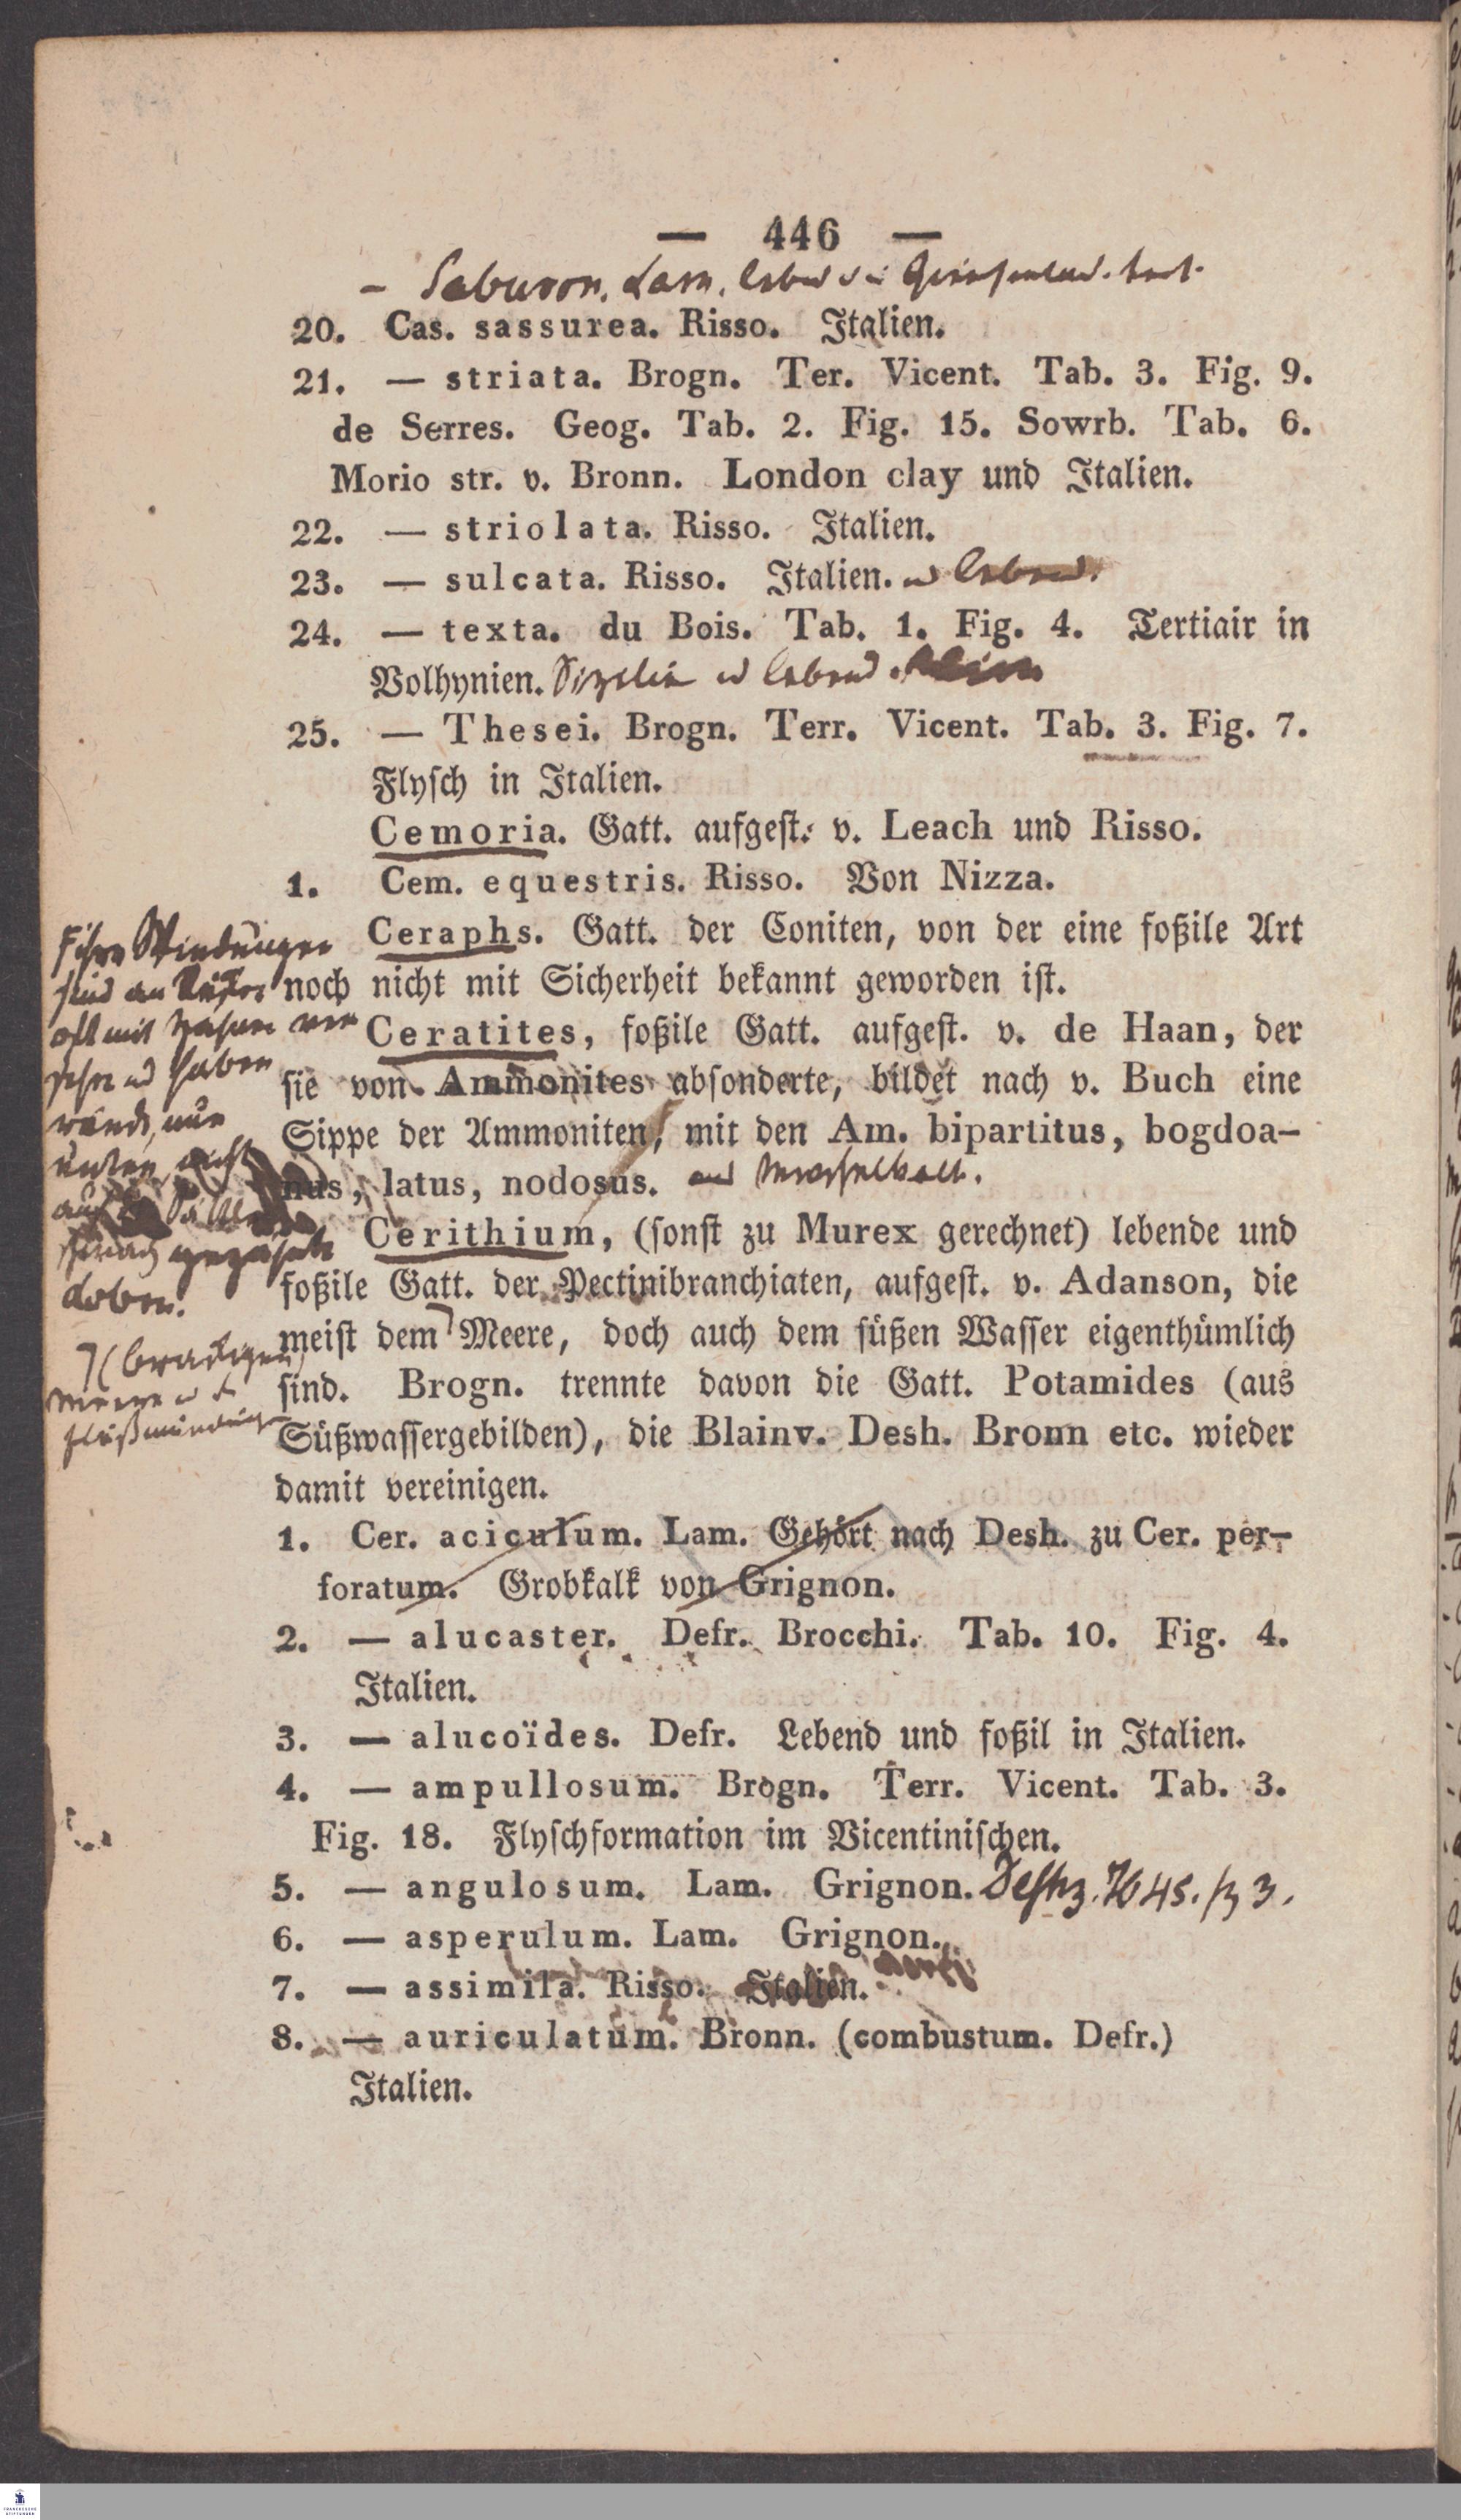 — 446 —
– Saburon. Lam. lebend
20. Cas. sassurea. Risso. Italien.
21. — striata. Brogn. Ter. Vicent. Tab. 3. Fig. 9.
de Serres. Geog. Tab. 2. Fig. 15. Sowrb. Tab. 6.
Morio str. v. Bronn. London clay und Italien.
22. — striolata. Risso. Italien.
23. — sulcata. Risso. Italien. u lebend.
24. — texta. du Bois. Tab. 1. Fig. 4. Tertiair in
Volhynien. Sizilien u lebend.
25. — Thesei. Brogn. Terr. Vicent. Tab. 3. Fig. 7.
Flysch in Italien.
Cemoria. Gatt. aufgest. v. Leach und Risso.
1. Cem. equestris. Risso. Von Nizza.
Ceraphs. Gatt. der Coniten, von der eine foßile Art
noch nicht mit Sicherheit bekannt geworden ist.
Ceratites, foßile Gatt. aufgest. v. de Haan, der
sie von Ammonites absonderte, bildet nach v. Buch eine
Sippe der Ammoniten, mit den Am. bipartitus, bogdoa-
nus, latus, nodosus. Muschelkalk.
Cerithium, (sonst zu Murex gerechnet) lebende und
foßile Gatt. der Pectinibranchiaten, aufgest. v. Adanson, die
meist dem Meere, doch auch dem süßen Wasser eigenthümlich
sind. Brogn. trennte davon die Gatt. Potamides (aus
Süßwassergebilden), die Blainv. Desh. Bronn etc. wieder
damit vereinigen.
1. Cer. aciculum. Lam. Gehört nach Desh. zu Cer. per-
foratum. Grobkalk von Grignon.
2. — alucaster. Defr. Brocchi. Tab. 10. Fig. 4.
Italien.
3. — alucoïdes. Defr. Lebend und foßil in Italien.
4. — ampullosum. Brogn. Terr. Vicent. Tab. 3.
Fig. 18. Flyschformation im Vicentinischen.
5. — angulosum. Lam. Grignon. 45. 3.
6. — asperulum. Lam. Grignon.
7. — assimila. Risso. Italien.
8. — auriculatum. Bronn. (combustum. Defr.)
Italien.
Windungen
sind am
oft mit ver
sehn u haben
nur
Loben.
(brackigen)
Meere u d
Flußmündungen